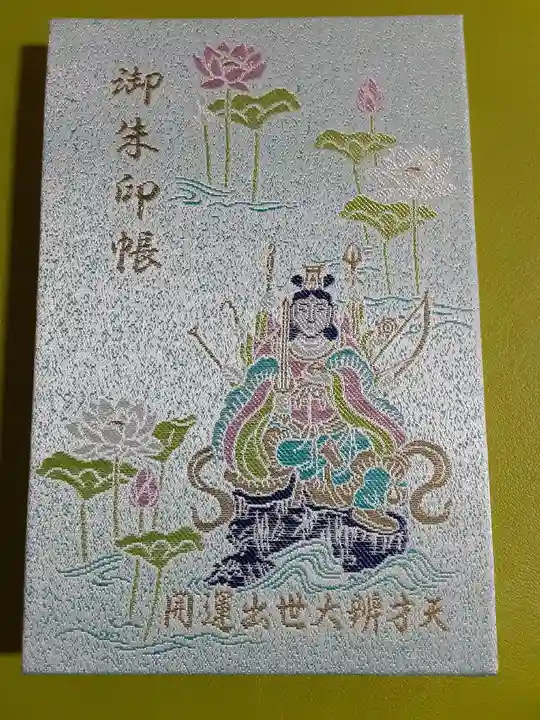 御朱印帳
開運出世大辨才天